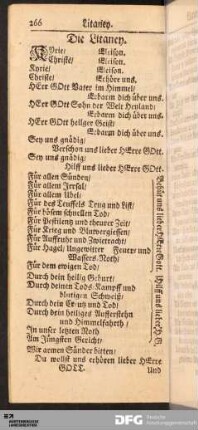 266 Litaney.
Die Litaney.
Kyrie/ Eleison.
Christe/ Eleison.
Kyrie/ Eleison.
Christe/ Erhöre uns.
HErr GOtt Vater im Himmel/
Erbarm dich über uns.
HErr GOtt Sohn der Welt Heyland/
Erbarm dich über uns.
HErr GOtt heilger Geist/
Erbarm dich über uns.
Sey uns gnädig/
Verschon uns lieber HErre GOtt.
Sey uns gnädig/
Hilff uns lieber HErre GOtt.
Für allen Sünden/
Für allem Irrsal/
Für allem Übel/
Für des Teuffels Trug und List/
Für bösem schnellen Tod/
Für Pestilentz und theurer Zeit/
Für Krieg und Blutvergiessen/
Für Auffruhr und Zwietracht/
Für Hagel/ Ungewitter Feuer- und
Wassers-Noth/
Für dem ewigen Tod/
Behüt uns lieber HErre Gott.
Durch dein heilig Geburt/
Durch deinen Tods-Kampff und
blutigen Schweiß/
Durch dein Creutz und Tod/
Durch dein heiliges Aufferstehn
und Himmelfahrth/
In unser letzten Noth
Am Jüngsten Gericht/
Hilff uns lieber H. G.
Wir armen Sünder bitten/
Du wollst uns erhören lieber HErre
GOTT. Und
DFG